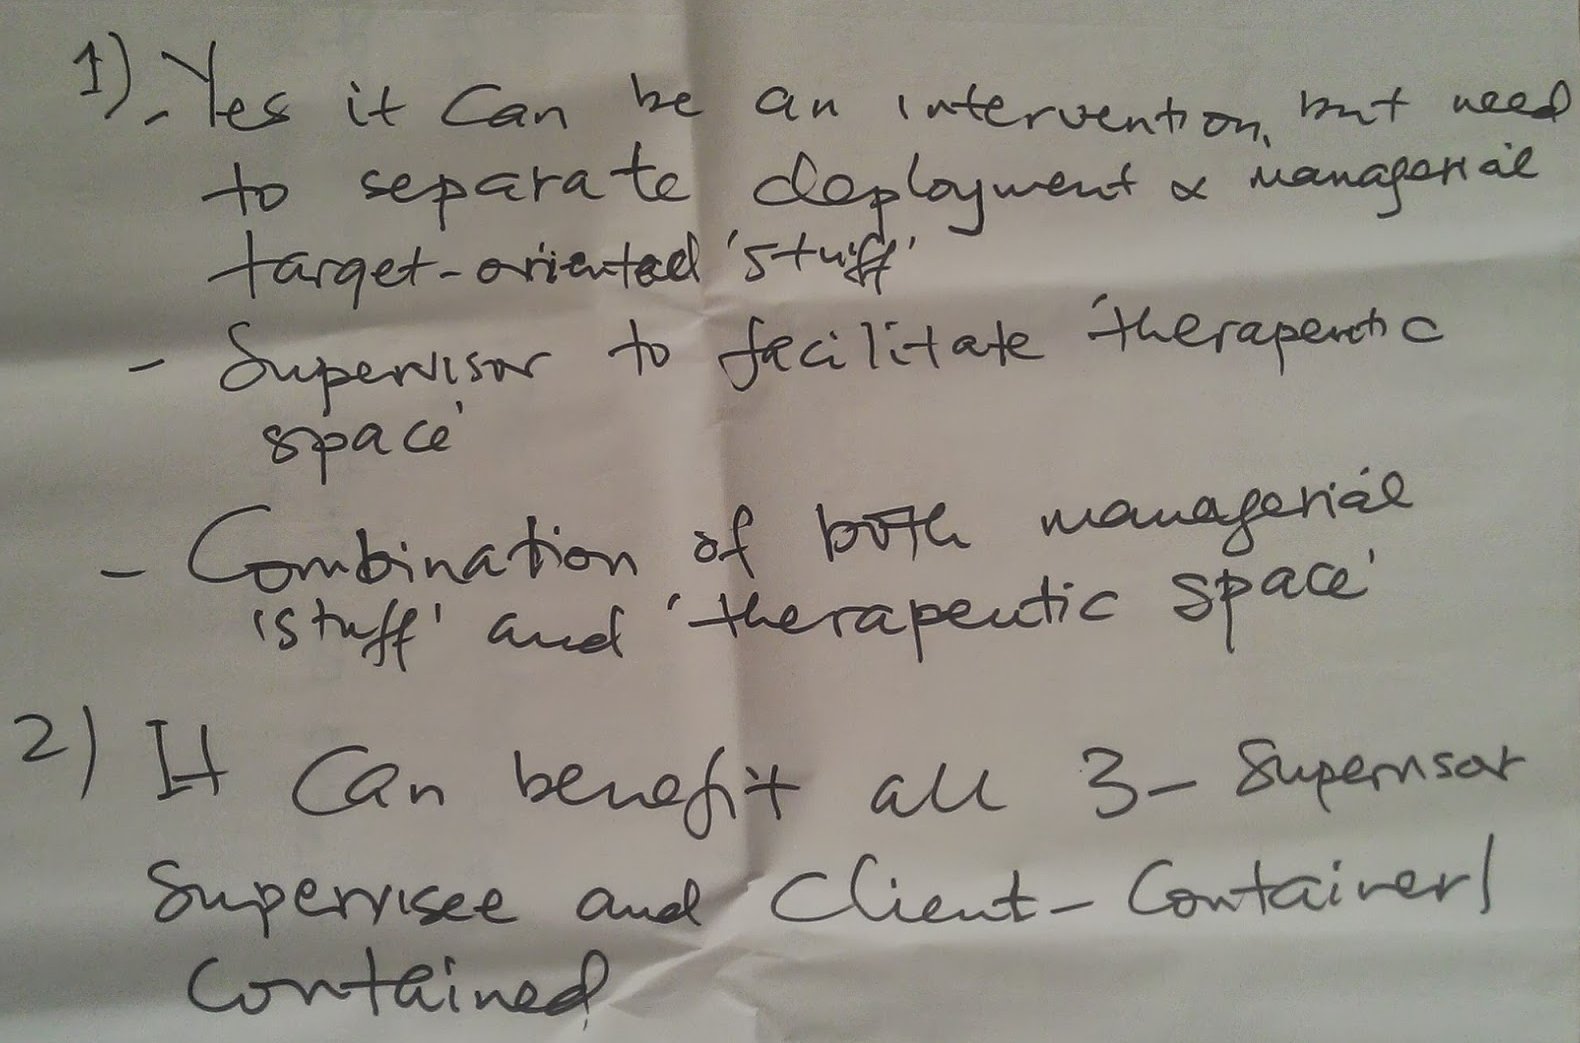 1). - Yes it Can be an intervention, but need
to separate deployment & managerial
target-oriented 'stuff'
- Supervisor to facilitate 'therapeutic
space'
- Combination of both managerial
'stuff' and 'therapeutic space'
2) It Can benefit all 3 - Supervisor
Supervisee and Client - Container/
Contained